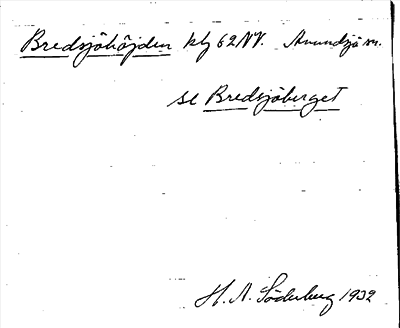 Bredsjöhöjden klg 62NV. Anundsjö sn.
se Bredsjöberget
H. A. Söderberg 1932